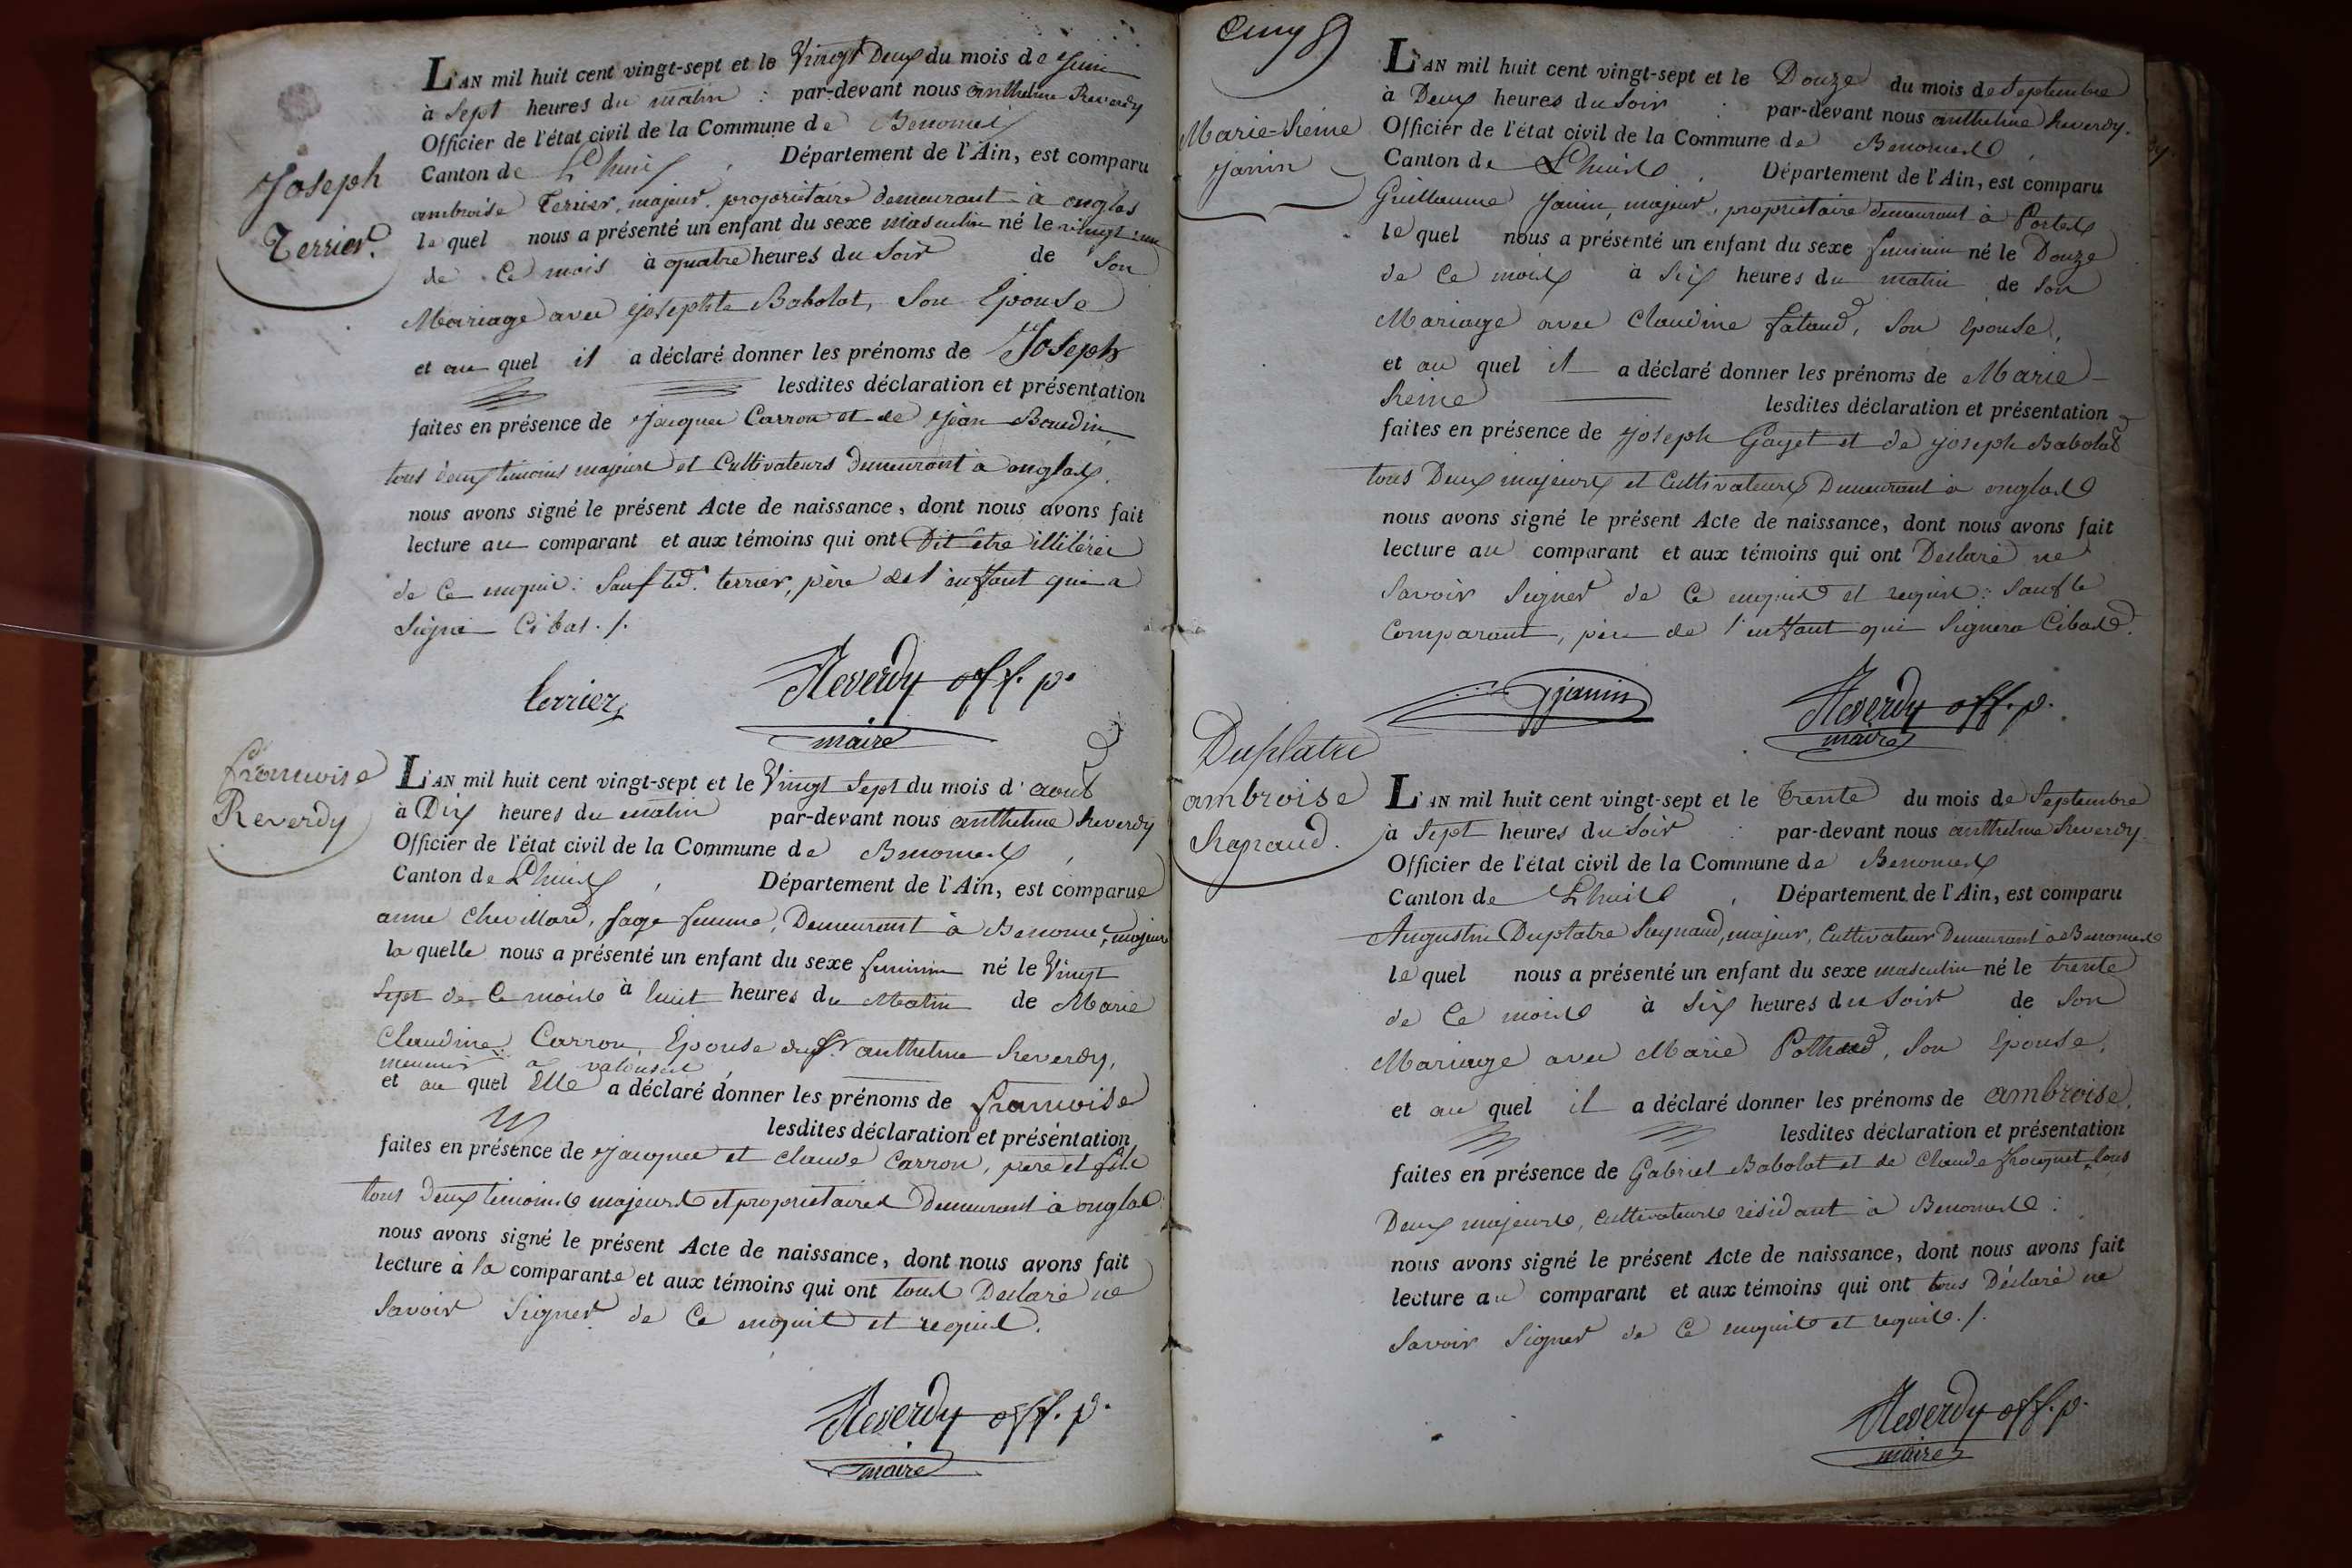 Joseph
Terrier.
L'AN mil huit cent vingt-sept et le Vingt Deux du mois de Juin
à Sept heures du matin : par-devant nous anthelme Reverdy
Officier de l'état civil de la Commune de Benonces
Canton de Lhuis , Département de l'Ain, est comparu
ambroise Terrier, majeur, propriétaire demeurant à onglas
le quel nous a présenté un enfant du sexe masculin né le vingt un
de Ce mois à quatre heures du Soir de Son
Mariage avec josephte Babolat, Son Epouse
et au quel il a déclaré donner les prénoms de Joseph
lesdites déclaration et présentation
faites en présence de Jacques Carron et de Jean Baudin,
tous deux temoins majeurs et Cultivateurs Demeurant à onglas.
nous avons signé le présent Acte de naissance, dont nous avons fait
lecture au comparant et aux témoins qui ont Dit être illitérés
de Ce enquis : Sauf led. terrier, père de l'enffant qui a
Signé Ci bas ./.
terrier
Reverdy off. p.
maire
francoise
Reverdy
L'AN mil huit cent vingt-sept et le Vingt Sept du mois d'aout
à Dix heures du matin par-devant nous anthelme Reverdy
Officier de l'état civil de la Commune de Benonces ,
Canton de Lhuis , Département de l'Ain, est comparue
anne Chevillard, Sage femme, Demeurant à Benonce, majeure
la quelle nous a présenté un enfant du sexe feminin né le Vingt
Sept de Ce mois à huit heures du Matin de Marie
Claudine Carron Epouse du Sr. anthelme Reverdy,
meunier à
et au quel Elle a déclaré donner les prénoms de francoise
lesdites déclaration et présentation
faites en présence de Jacques et Claude Carron, père et fils
tous Deux temoins majeurs et propriétaires Demeurant à onglas
nous avons signé le présent Acte de naissance, dont nous avons fait
lecture à la comparante et aux témoins qui ont tous Déclaré ne
Savoir Signer de Ce enquis et requis.
Reverdy off. p.
maire
Cinq
Marie-Reine
Janin
L'AN mil huit cent vingt-sept et le Douze du mois de Septembre
à Deux heures du Soir : par-devant nous anthelme Reverdy.
Officier de l'état civil de la Commune de Benonces ,
Canton de Lhuis , Département de l'Ain, est comparu
Guillaume Janin, majeur, propriétaire demeurant à Portes
le quel nous a présenté un enfant du sexe feminin né le Douze
de Ce mois à Six heures du matin de Son
Mariage avec Claudine fataud, Son Epouse,
et au quel il a déclaré donner les prénoms de Marie
Reine lesdites déclaration et présentation
faites en présence de joseph Gayet et de joseph Babolat
tous Deux majeurs et Cultivateurs Demeurant à onglas
nous avons signé le présent Acte de naissance, dont nous avons fait
lecture au comparant et aux témoins qui ont Déclaré ne
Savoir Signer de Ce enquis et requis : Sauf le
Comparant, père de l'enffant qui Signera Cibas.
Gjanin
Reverdy off. p.
maire
Duplatre
ambroise
L'AN mil huit cent vingt-sept et le Trente du mois de Septembre
à Sept heures du Soir : par-devant nous anthelme Reverdy.
Officier de l'état civil de la Commune de Benonces
Canton de Lhuis , Département de l'Ain, est comparu
Augustin Duplatre Reynaud, majeur, Cultivateur Demeurant à Benonces
le quel nous a présenté un enfant du sexe masculin né le trente
de Ce mois à Six heures du Soir de Son
Mariage avec Marie Son Epouse,
et au quel il a déclaré donner les prénoms de ambroise.
lesdites déclaration et présentation
faites en présence de Gabriel Babolat et de Claude tous
Deux majeurs, cultivateurs résidant à Benonces :
nous avons signé le présent Acte de naissance, dont nous avons fait
lecture au comparant et aux témoins qui ont tous Déclaré ne
Savoir Signer de Ce enquis et requis ./.
Reverdy off. p.
maire